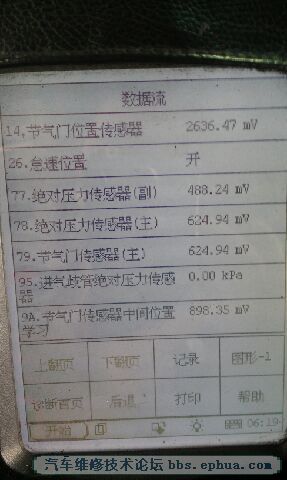 数据流
14.节气门位置传感器 2636.47 mV
26.怠速位置 开
77.绝对压力传感器(副) 488.24 mV
78.绝对压力传感器(主) 624.94 mV
79.节气门传感器(主) 624.94 mV
95.进气歧管绝对压力传感
器 0.00 kPa
9A.节气门传感器中间位置 898.35 mV
学习
上翻页 下翻页 记录 图形-1
诊断首页 后退 打印 帮助
开始 06:19
汽车维修技术论坛 bbs.ephua.com